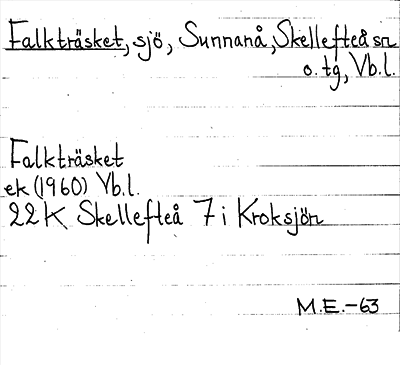 Falkträsket, sjö, Sunnanå, Skellefteå sn
o. tg, Vb.l.
Falkträsket
ek (1960) Vb.l.
22K Skellefteå 7 i Kroksjön
M.E.-63